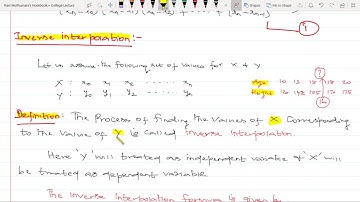 Ravi Muthusami's Notebook – College Lecture
Inverse interpolation :-
Let us assume the following set of values for x & y
x : x₀ x₁ x₂ ...... xₙ
y : y₀ y₁ y₂ ...... yₙ
Age 10 12 15 18 20
Height
Definition: The Process of finding the values of X corresponding
to the value of Y is called inverse interpolation.
Here 'y' will treated as independent variable & 'x' will
be treated as dependent variable
The inverse interpolation formula is given by